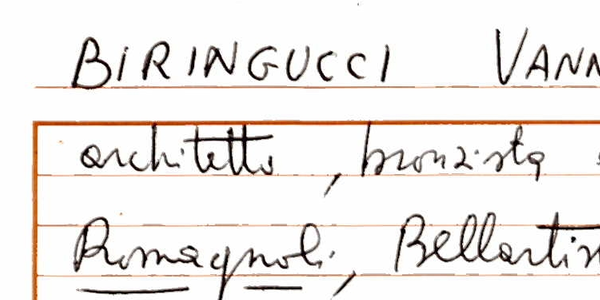 BIRINGUCCI VANN
architetto, bronzista
Romagnoli, Bellartis